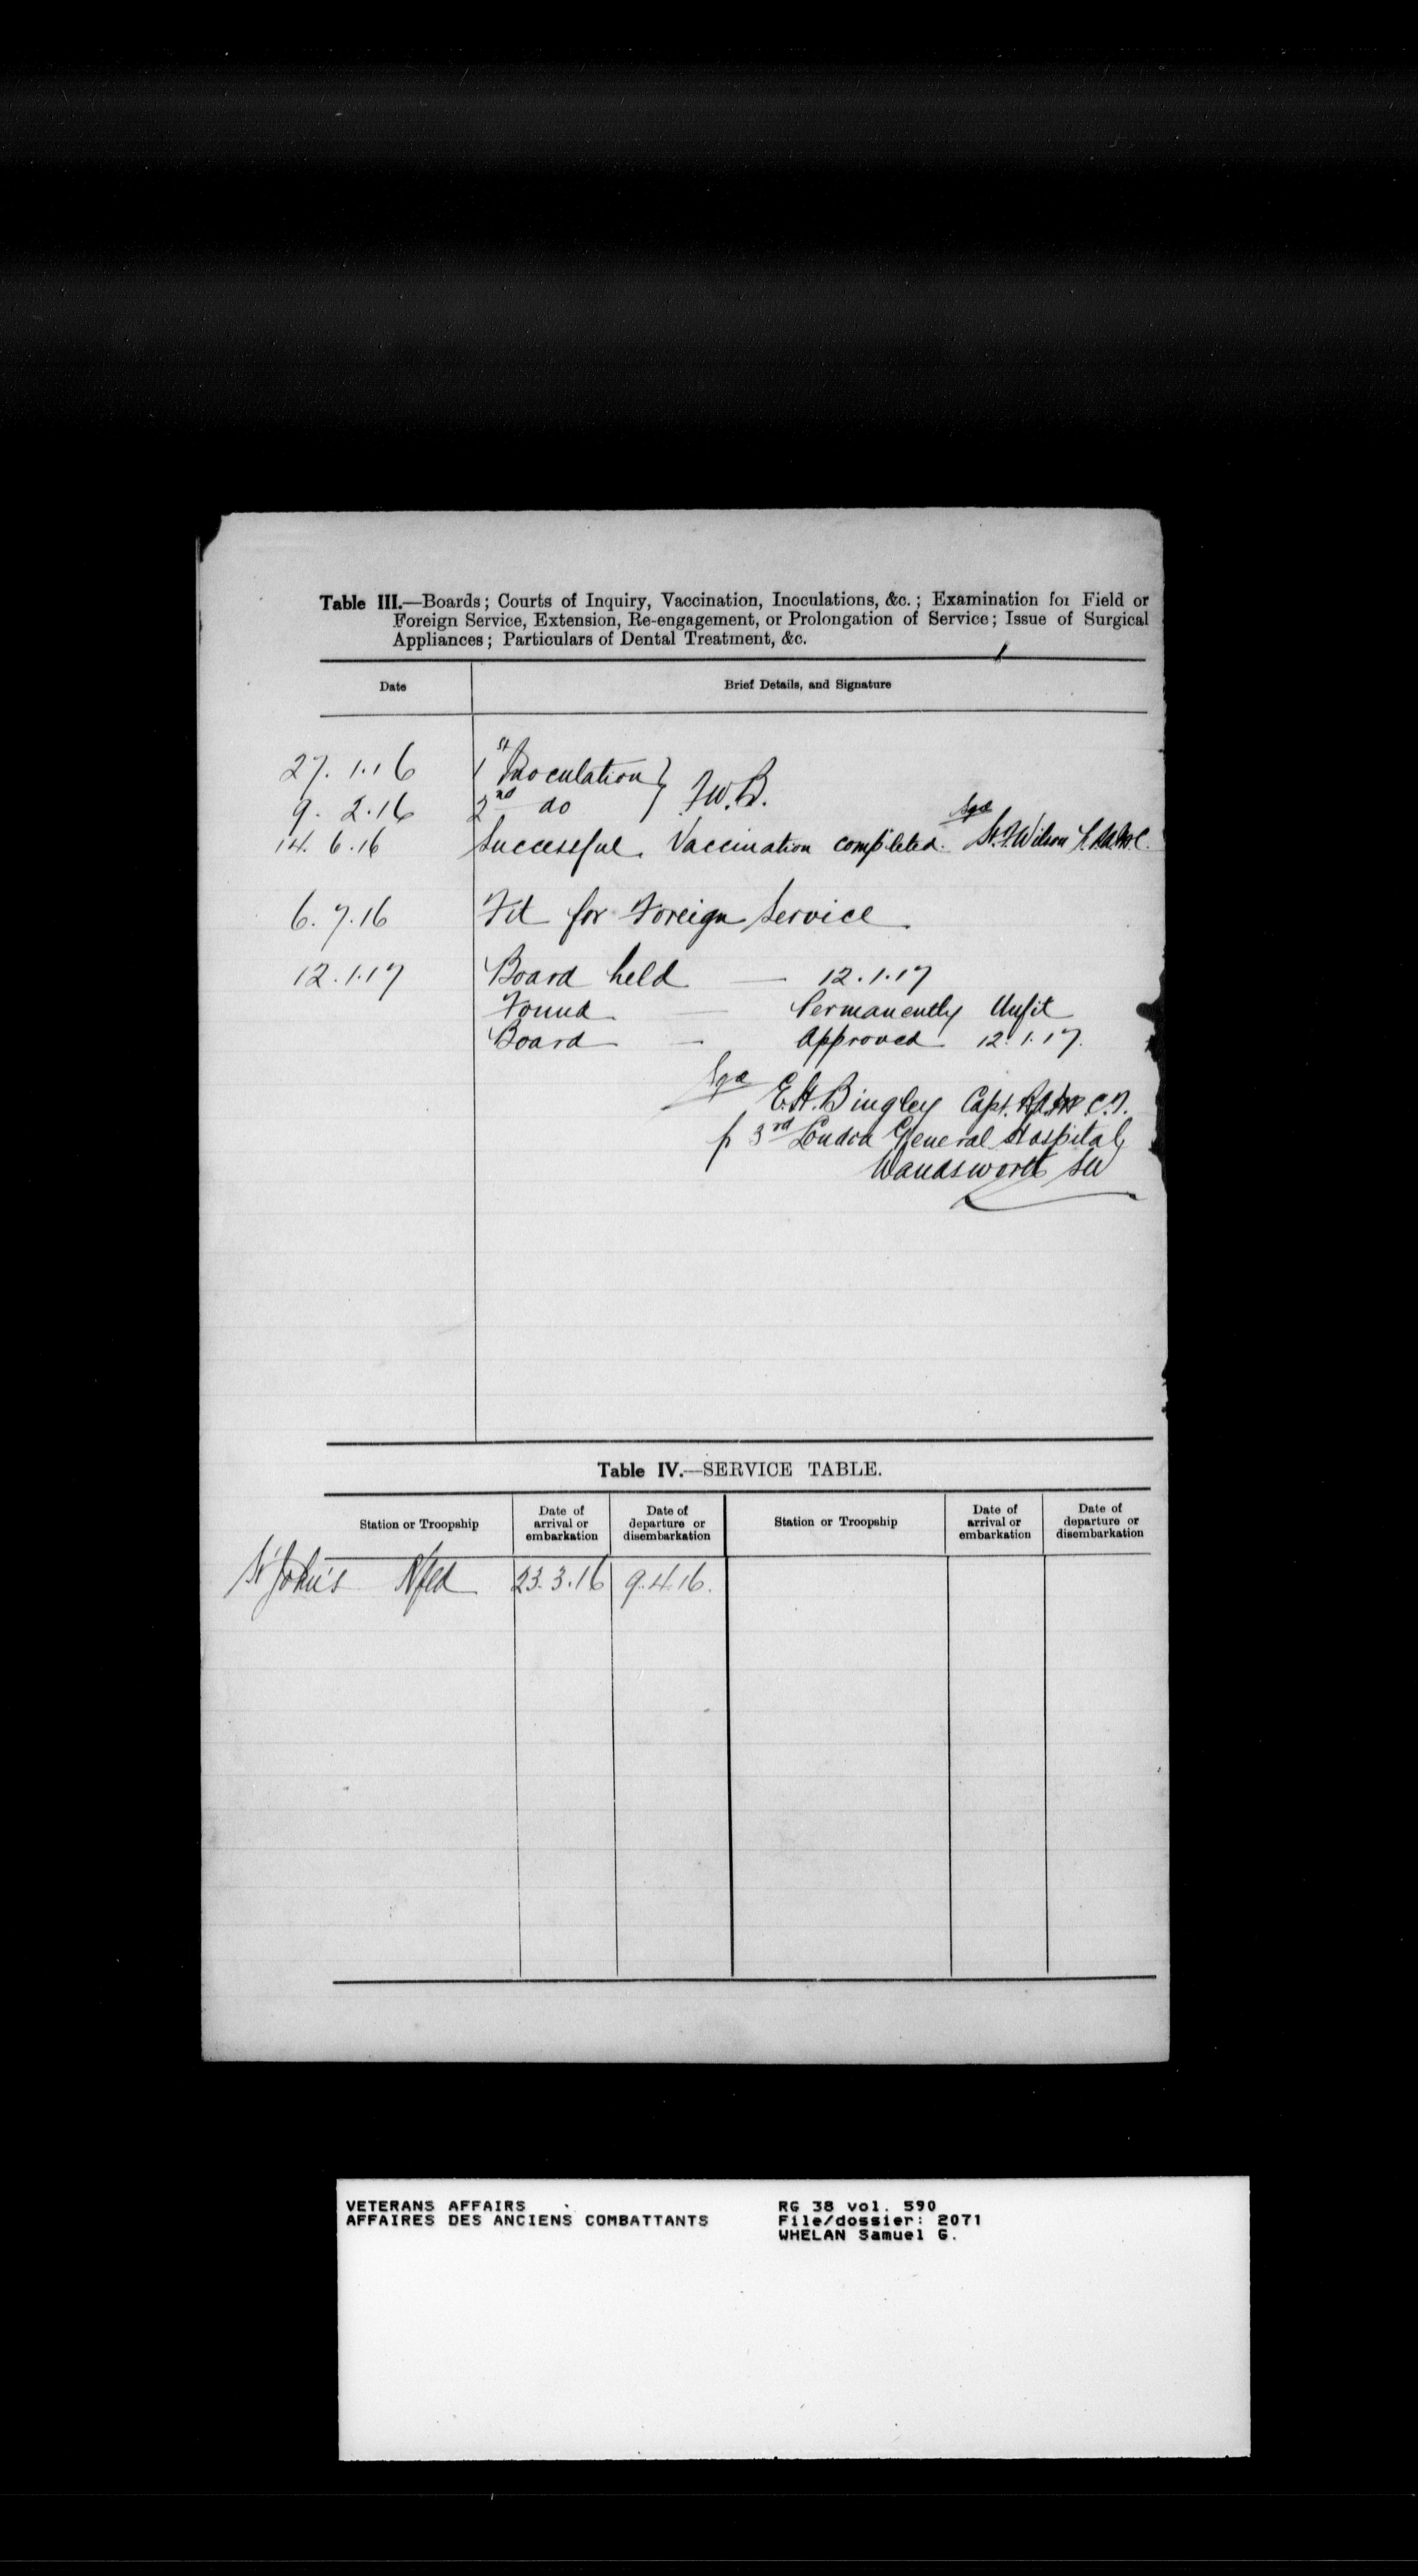 Table III.—Boards; Courts of Inquiry, Vaccination, Inoculations, &c.; Examination for Field or
Foreign Service, Extension, Re-engagement, or Prolongation of Service; Issue of Surgical
Appliances; Particulars of Dental Treatment, &c.
Date Brief Details, and Signature
27.1.16 1st Inoculation } F.W.B.
9.2.16 2nd do
14.6.16 Successful Vaccination completed. Sgd Wilson
6.7.16 Fit for Foreign Service
12.1.17 Board held — 12.1.17
Found — Permanently Unfit
Board — Approved 12.1.17.
Sgd E.H. Bingley Capt. R.A.M.C.T.
fr 3rd London General Hospital,
Wandsworth SW
Table IV.—SERVICE TABLE.
Station or Troopship Date of arrival or embarkation Date of departure or disembarkation Station or Troopship Date of arrival or embarkation Date of departure or disembarkation
St John's Nfld 23.3.16 9.4.16.
VETERANS AFFAIRS RG 38 vol. 590
AFFAIRES DES ANCIENS COMBATTANTS File/dossier: 2071
WHELAN Samuel G.